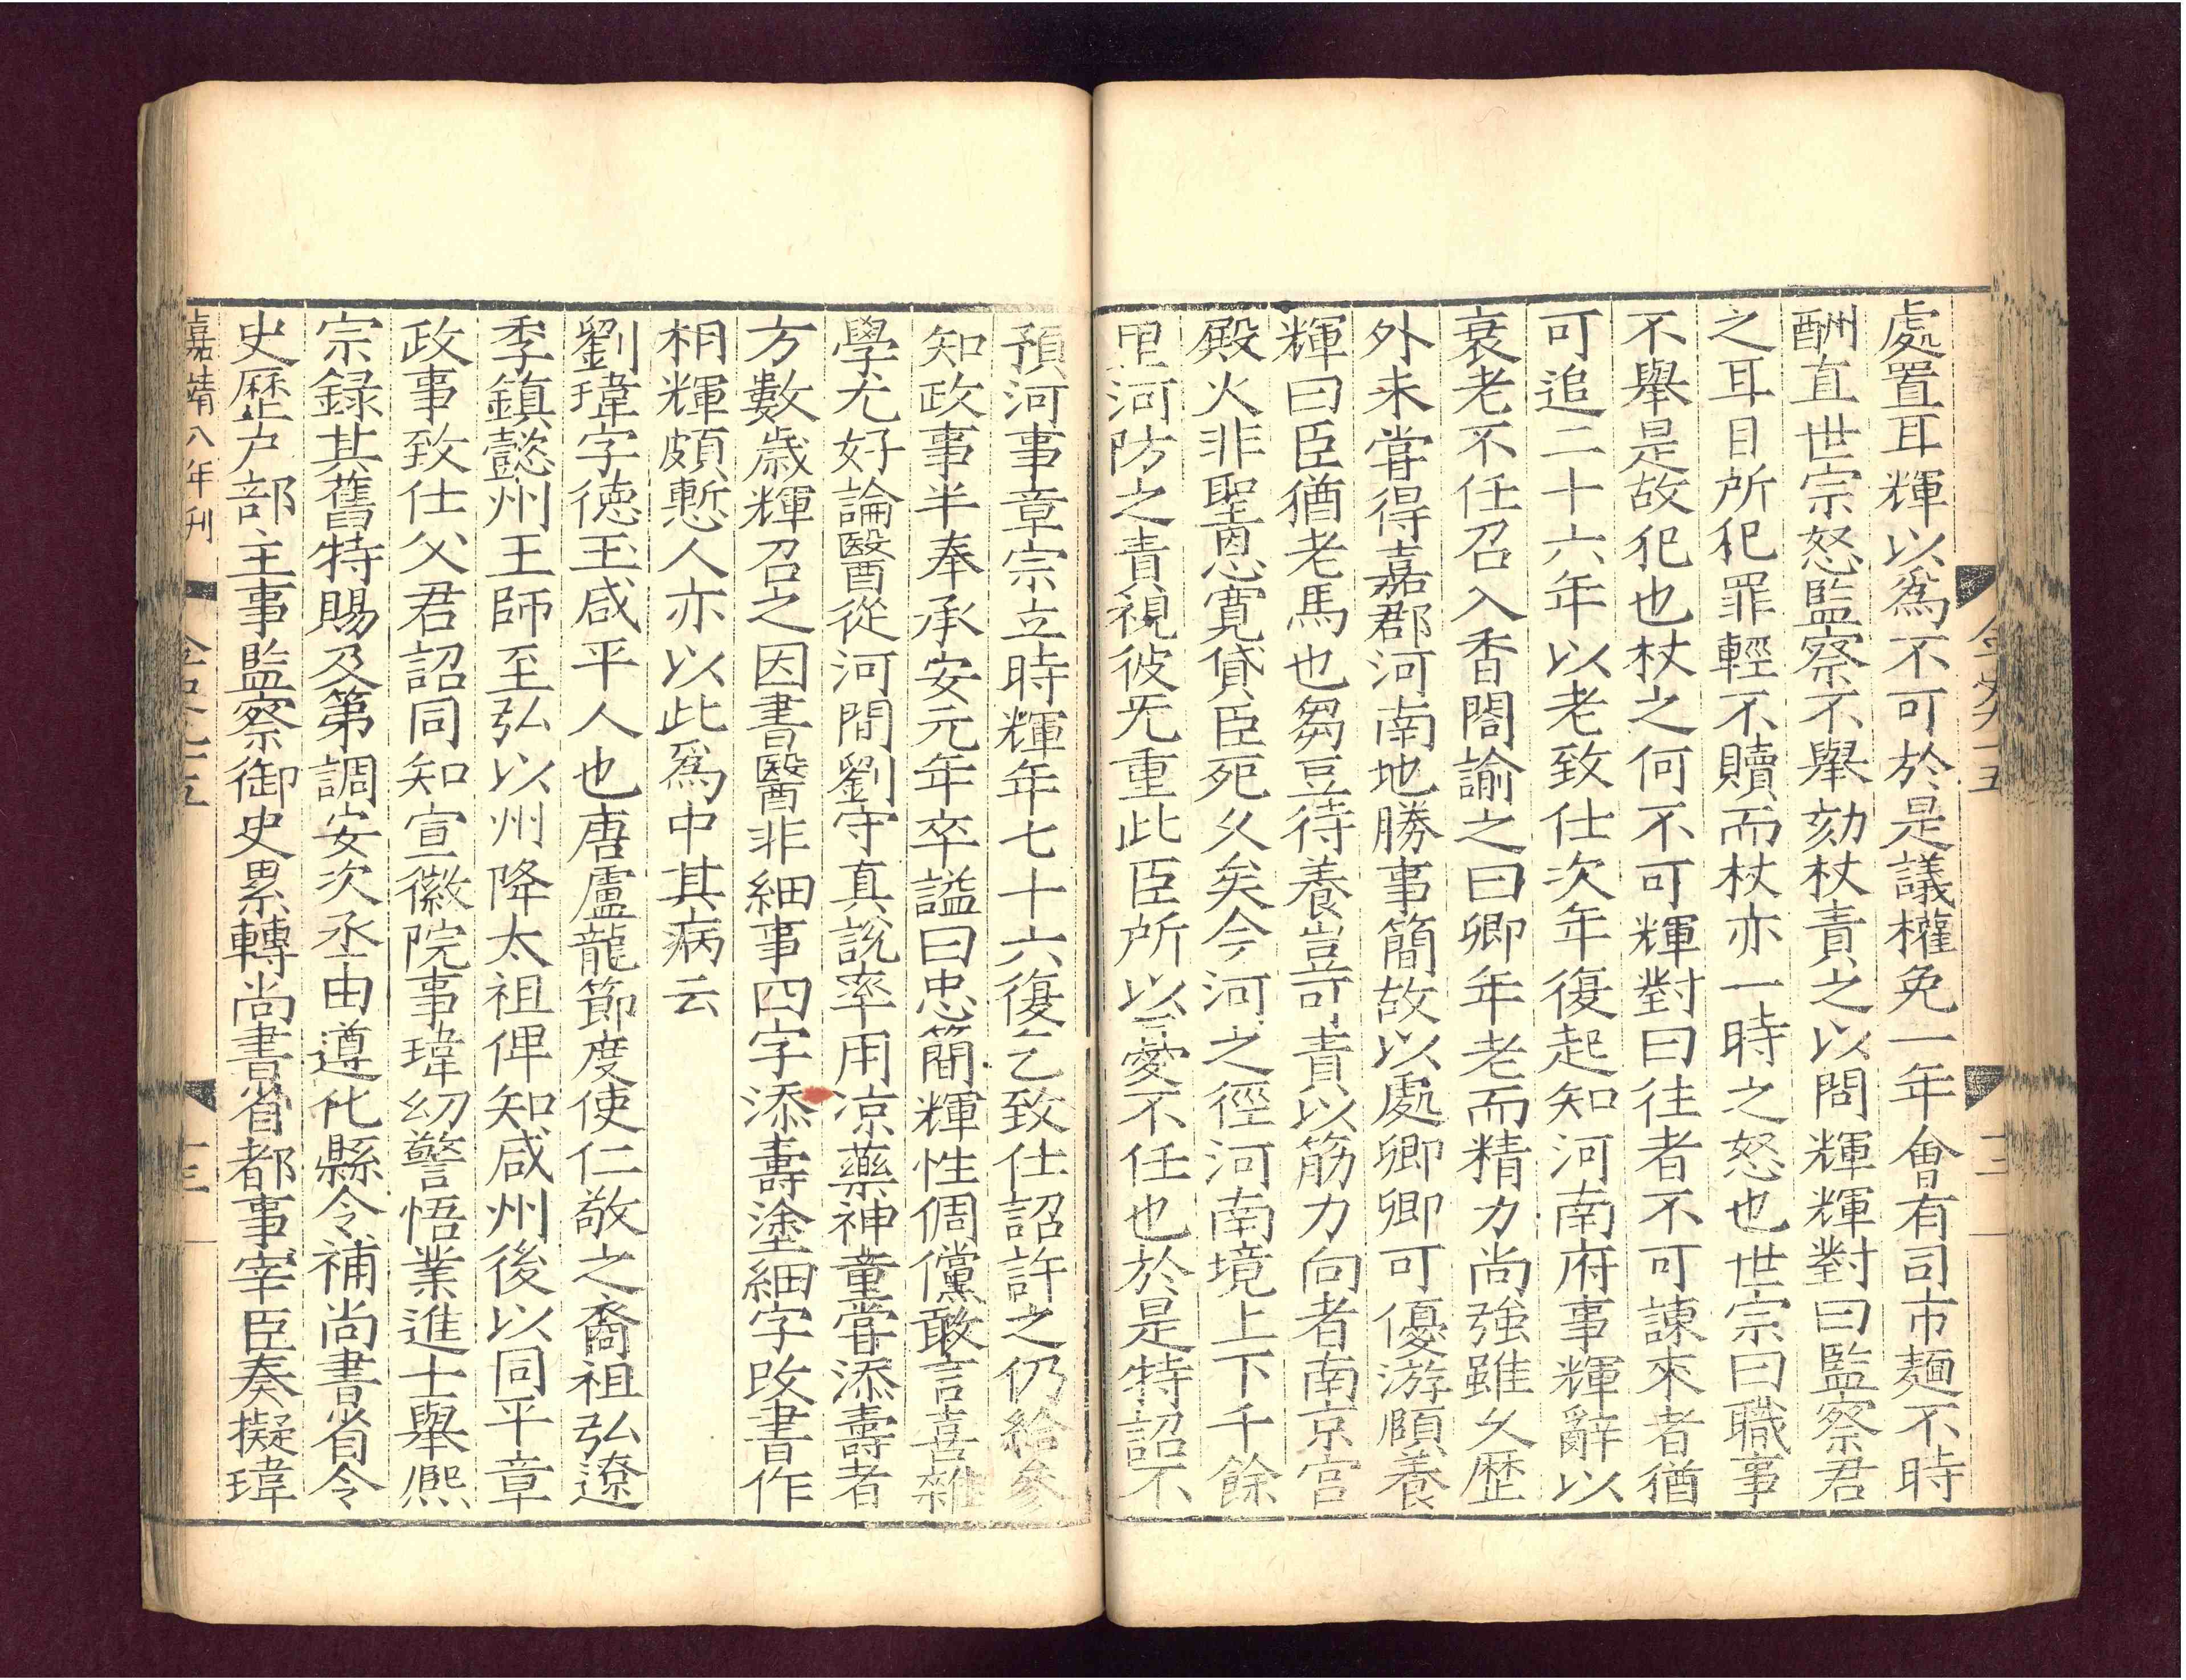 處置耳輝以爲不可於是議權免一年會有司市麺不時
酬直世宗怒監察不舉劾杖責之以問輝輝對曰監察君
之耳目所犯罪輕不贖而杖亦一時之怒也世宗曰職事
不舉是故犯也杖之何不可輝對曰往者不可諫來者猶
可追二十六年以老致仕次年復起知河南府事輝辭以
衰老不任召入香閤諭之曰卿年老而精力尚強雖久歷
外未嘗得嘉郡河南地勝事簡故以處卿卿可優游頤養
輝曰臣猶老馬也芻豆待養豈可責以筋力向者南京宮
殿火非聖恩寬貸臣死久矣今河之徑河南境上下千餘
里河防之責視彼尤重此臣所以憂不任也於是特詔不
預河事章宗立時輝年七十六復乞致仕詔許之仍給參
知政事半奉承安元年卒謚曰忠簡輝性倜儻敢言喜雜
學尤好論醫從河間劉守真說率用凉藥神童嘗添壽者
方數歳輝召之因書醫非細事四字添壽塗細字改書作
相輝頗慙人亦以此爲中其病云
劉瑋字德玉咸平人也唐盧龍節度使仁敬之裔祖弘遼
季鎮懿州王師至弘以州降太祖俾知咸州後以同平章
政事致仕父君詔同知宣徽院事瑋幼警悟業進士舉熈
宗録其舊特賜及第調安次丞由遵化縣令補尚書省令
史歷户部主事監察御史累轉尚書省都事宰臣奏擬瑋
嘉靖八年刊